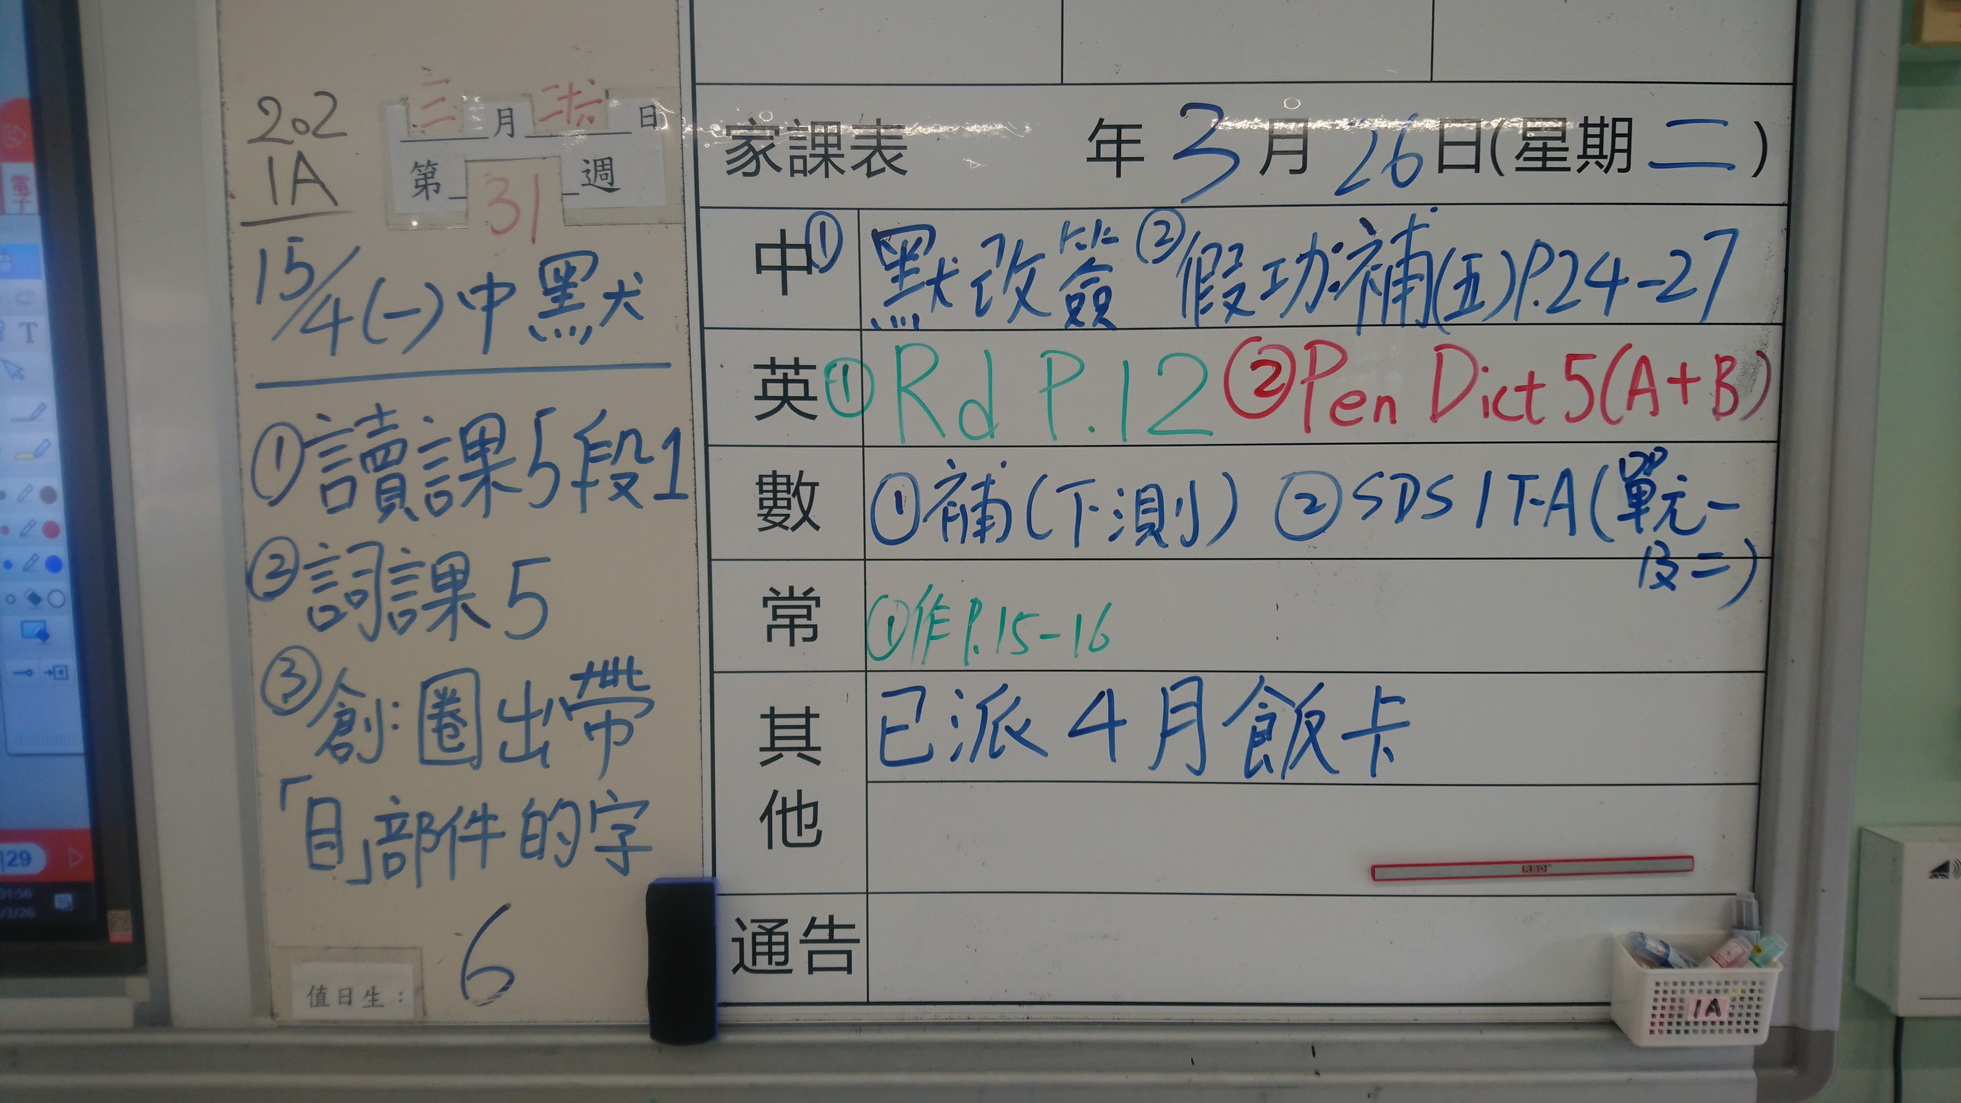 202
1A
三月二十六日
第31週
15/4(一)中默
①讀課5段1
②詞課5
③創:圈出帶
「目」部件的字
值日生: 6
家課表 年3月26日(星期二)
中 ①默改簽 ②假功:補(五)P.24-27
英 ①Rd P.12 ②Pen Dict 5(A+B)
數 ①補(下測) ②SDS 1T-A(單元一
及二)
常 ①作P.15-16
其他 已派4月飯卡
通告
1A
T
29